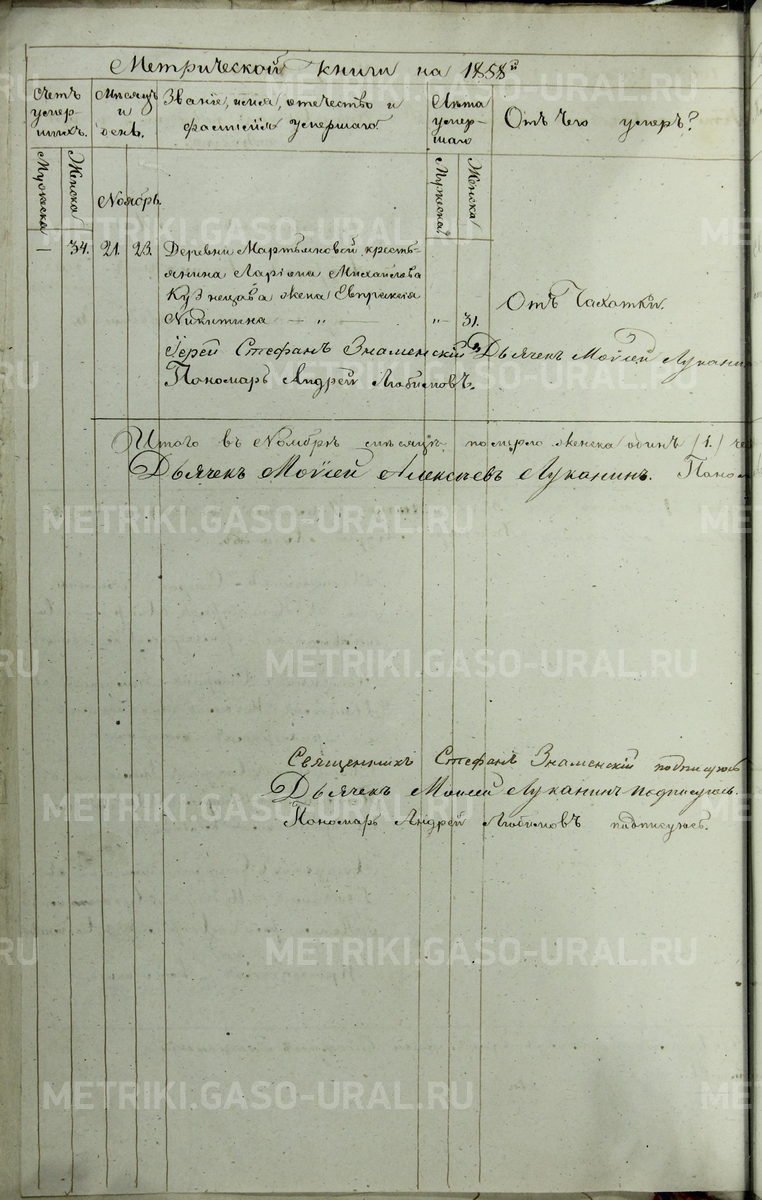 Метрической книги на 1858й
Счетъ умершихъ.
Мѣсяцъ и день.
Званіе, имя, отечество и фамилія умершаго.
Лѣта умершаго
Отъ чего умеръ?
Мужеска
Женска
Мужеска
Женска
Ноябрь.
— 34. 21. 23. Деревни Мартьяновой кресть-
янина Ларіона Михайлова
Кузнецова жена Евпраксія
Никитина — „ — „— 31. Отъ Чахотки.
Іерей Стефанъ Знаменскій Дьячекъ Моѵсей Лукани
Пономарь Андрей Любимовъ.
Итого въ Ноябрѣ мѣсяцѣ померло женска одинъ (1.) че
Дьячекъ Моѵсей Алексѣевъ Луканинъ. Поном
Священникъ Стефанъ Знаменскій подписуюсь
Дьячекъ Моисей Луканинъ подписуюсь.
Пономарь Андрей Любимовъ подписуюсь.
METRIKI.GASO-URAL.RU